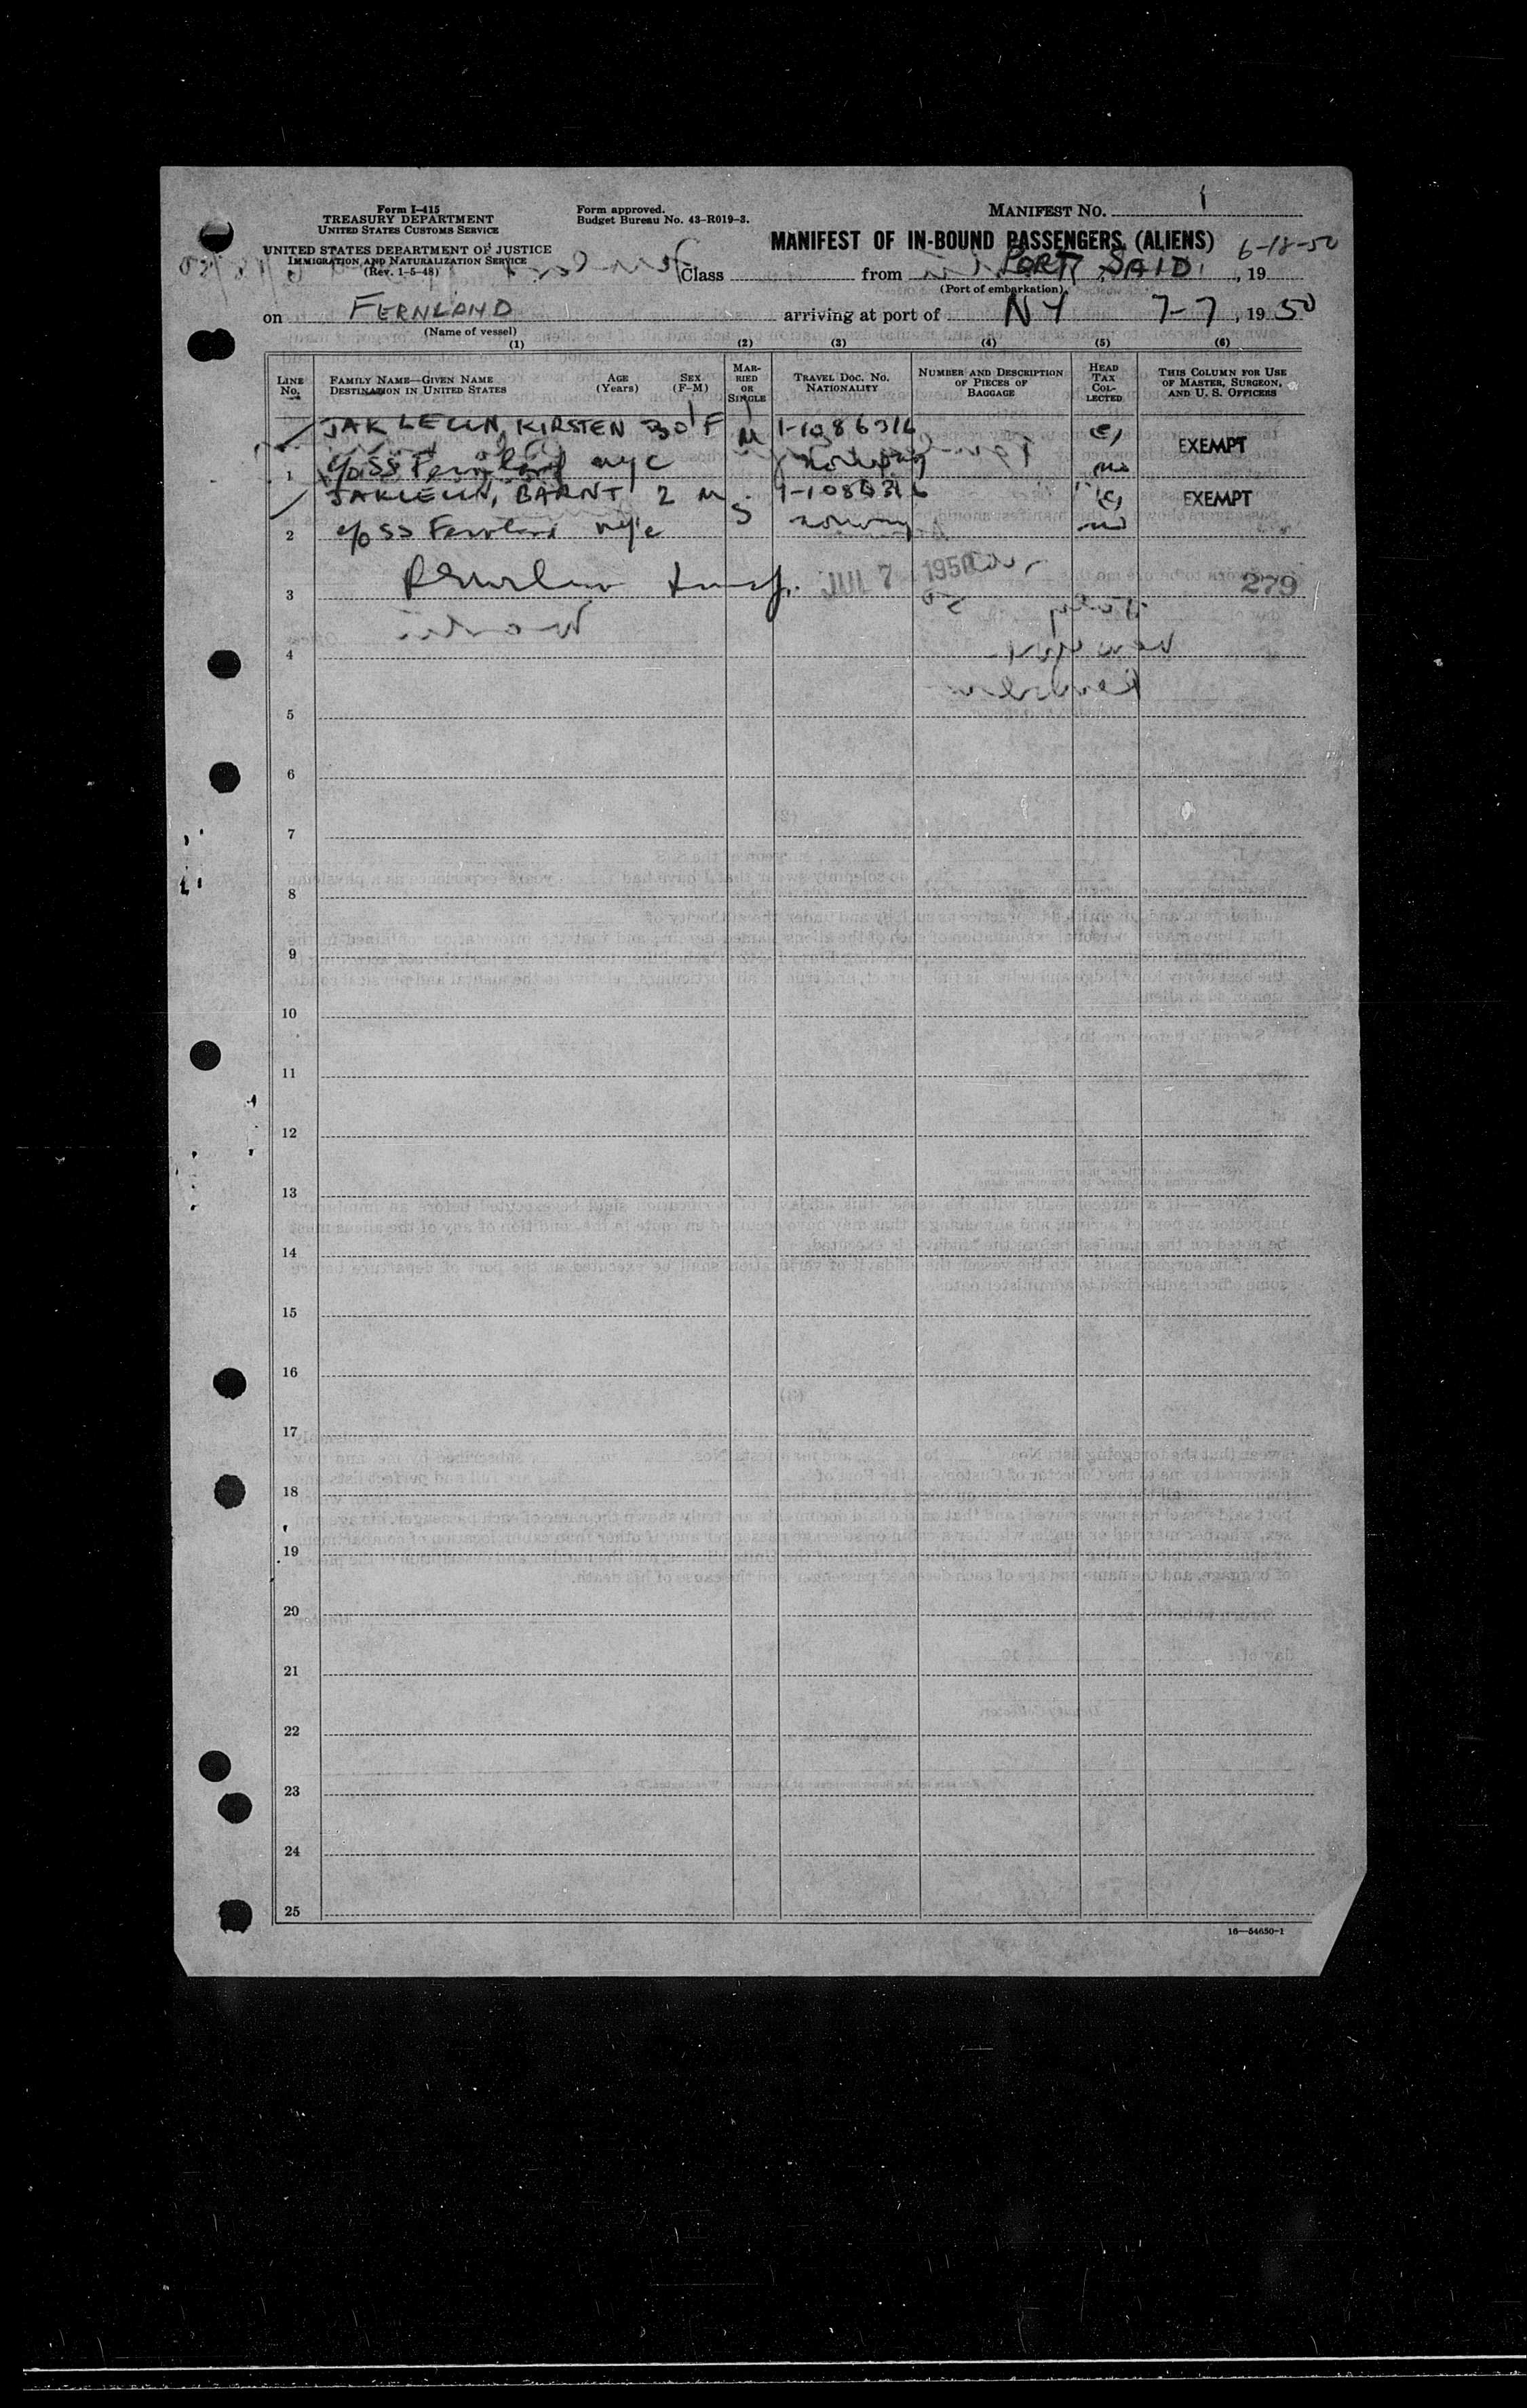 Form I-415
TREASURY DEPARTMENT
UNITED STATES CUSTOMS SERVICE
UNITED STATES DEPARTMENT OF JUSTICE
IMMIGRATION AND NATURALIZATION SERVICE
(Rev. 1-5-48)
Form approved.
Budget Bureau No. 43-R019-3.
MANIFEST NO. 1
MANIFEST OF IN-BOUND PASSENGERS (ALIENS)
Class from PORT SAID, 6-18-50, 19
(Port of embarkation)
on FERNLAND arriving at port of NY 7-7, 19 50
(Name of vessel)
(1) (2) (3) (4) (5) (6)
LINE No.
FAMILY NAME—GIVEN NAME
DESTINATION IN UNITED STATES
AGE (Years)
SEX (F-M)
MARRIED OR SINGLE
TRAVEL DOC. NO. NATIONALITY
NUMBER AND DESCRIPTION OF PIECES OF BAGGAGE
HEAD TAX COLLECTED
THIS COLUMN FOR USE OF MASTER, SURGEON, AND U. S. OFFICERS
JAKLELLN, KIRSTEN 30 F M 1-1086316 (E) EXEMPT
1 c/o SS Fernland nyc Norway no
JAKLELLN, BARNT 2 M S 1-1086316 (E) EXEMPT
2 c/o SS Fernland nyc Norway no
3 JUL 7 1950 279
4
5
6
7
8
9
10
11
12
13
14
15
16
17
18
19
20
21
22
23
24
25
16—54650-1